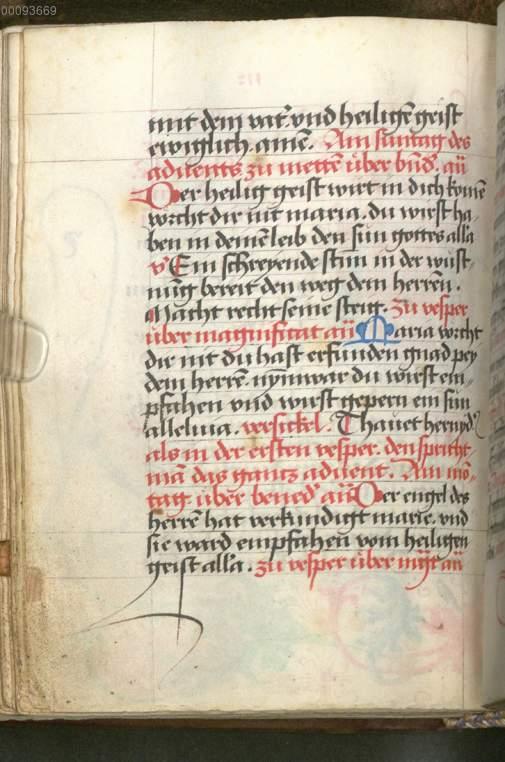 00093669
mit dem vat͛ vnd heiligē geist
ewiglich. amē. Am suntag des
aduents zu metten über bn̄d. an̄
Der heilig geist wirt in dich komē
vorcht dir nit maria. du wirst ha-
ben in deinē leib den sun gottes alla
v͛ Ein schreyende stim in der wüst-
nūg bereit den weg dem herren.
Macht recht seine steig. Zu vesper
über magnificat an̄ Maria vorcht
dir nit du hast erfunden gnad pey
dem herrē. nym war du wirst em-
pfahen vnd wirst gepern ein sun
alleluia. versickel. Thauet hernyd͛
als in der ersten vesper. den spricht
mā das gantz aduent. Am mō-
tag über bened͛ an̄ Der engel des
herrē hat verkundigt marie. vnd
sie ward empfahen vom heiligen
geist all'a. zu vesper über mg̅t an̄